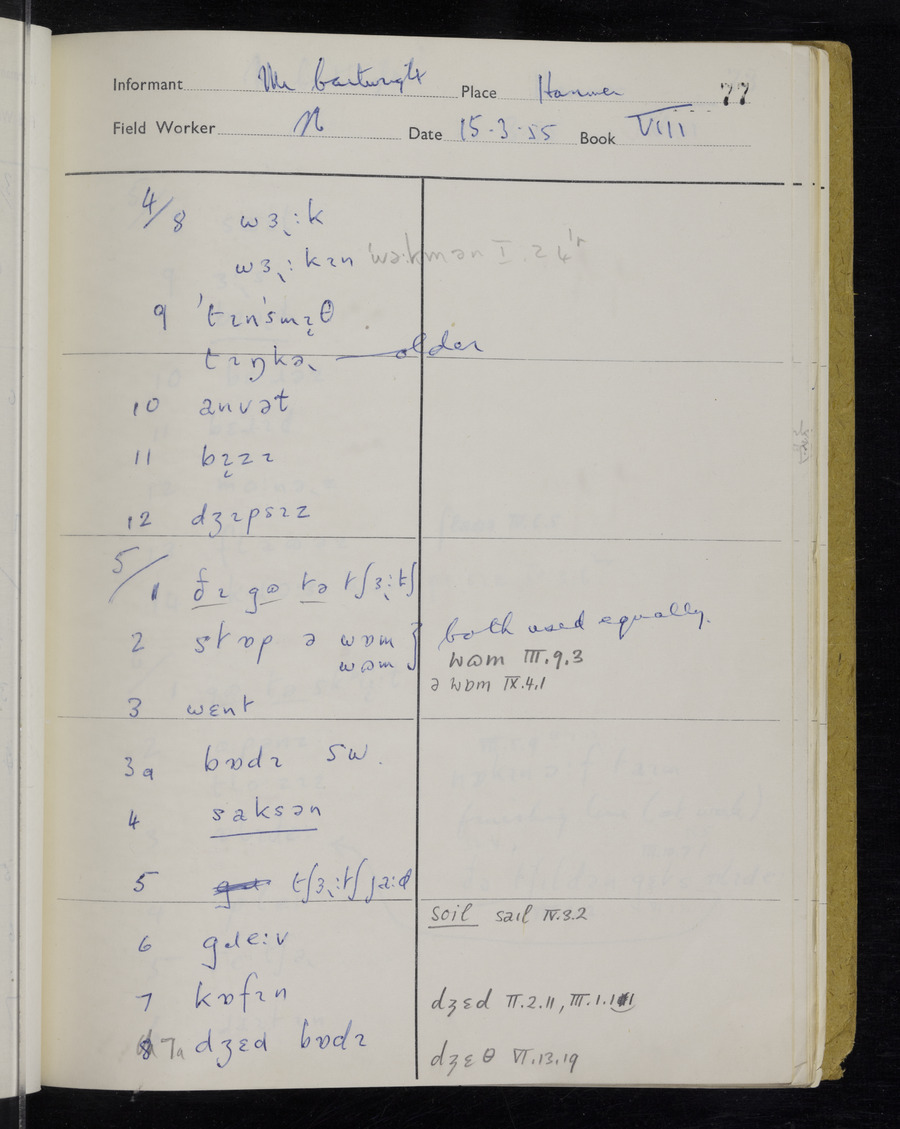 Informant Mr Cartwright Place Hanmer 77
Field Worker N Date 15·3·55 Book VIII
4/8 wɜ˞ːk
wɜ˞ːkɪn ˈwəˑkmən I.24'r
9 ˈtɪnˈsmɪ̞θ
tɪŋkə˞ — older
10 anvət
11 bɪ̞zɪ
12 dʒɪpsɪz
5/1 ðɪ gɷ tə tʃɜ˞ːtʃ
2 stɒp ə wɒm } both used equally.
wɷm wɷm III.9.3
ə wɒm IX.4.1
3 wɛnt
3a bɒdɪ SW.
4 saksən
5 tʃɜ˞ːtʃ jaːd
soil saɪl IV.3.2
6 gɹeːv
7 kɒfɪn
dʒɛd II.2.11, III.1.11
7a dʒɛd bɒdɪ
dʒɛθ VI.13.19